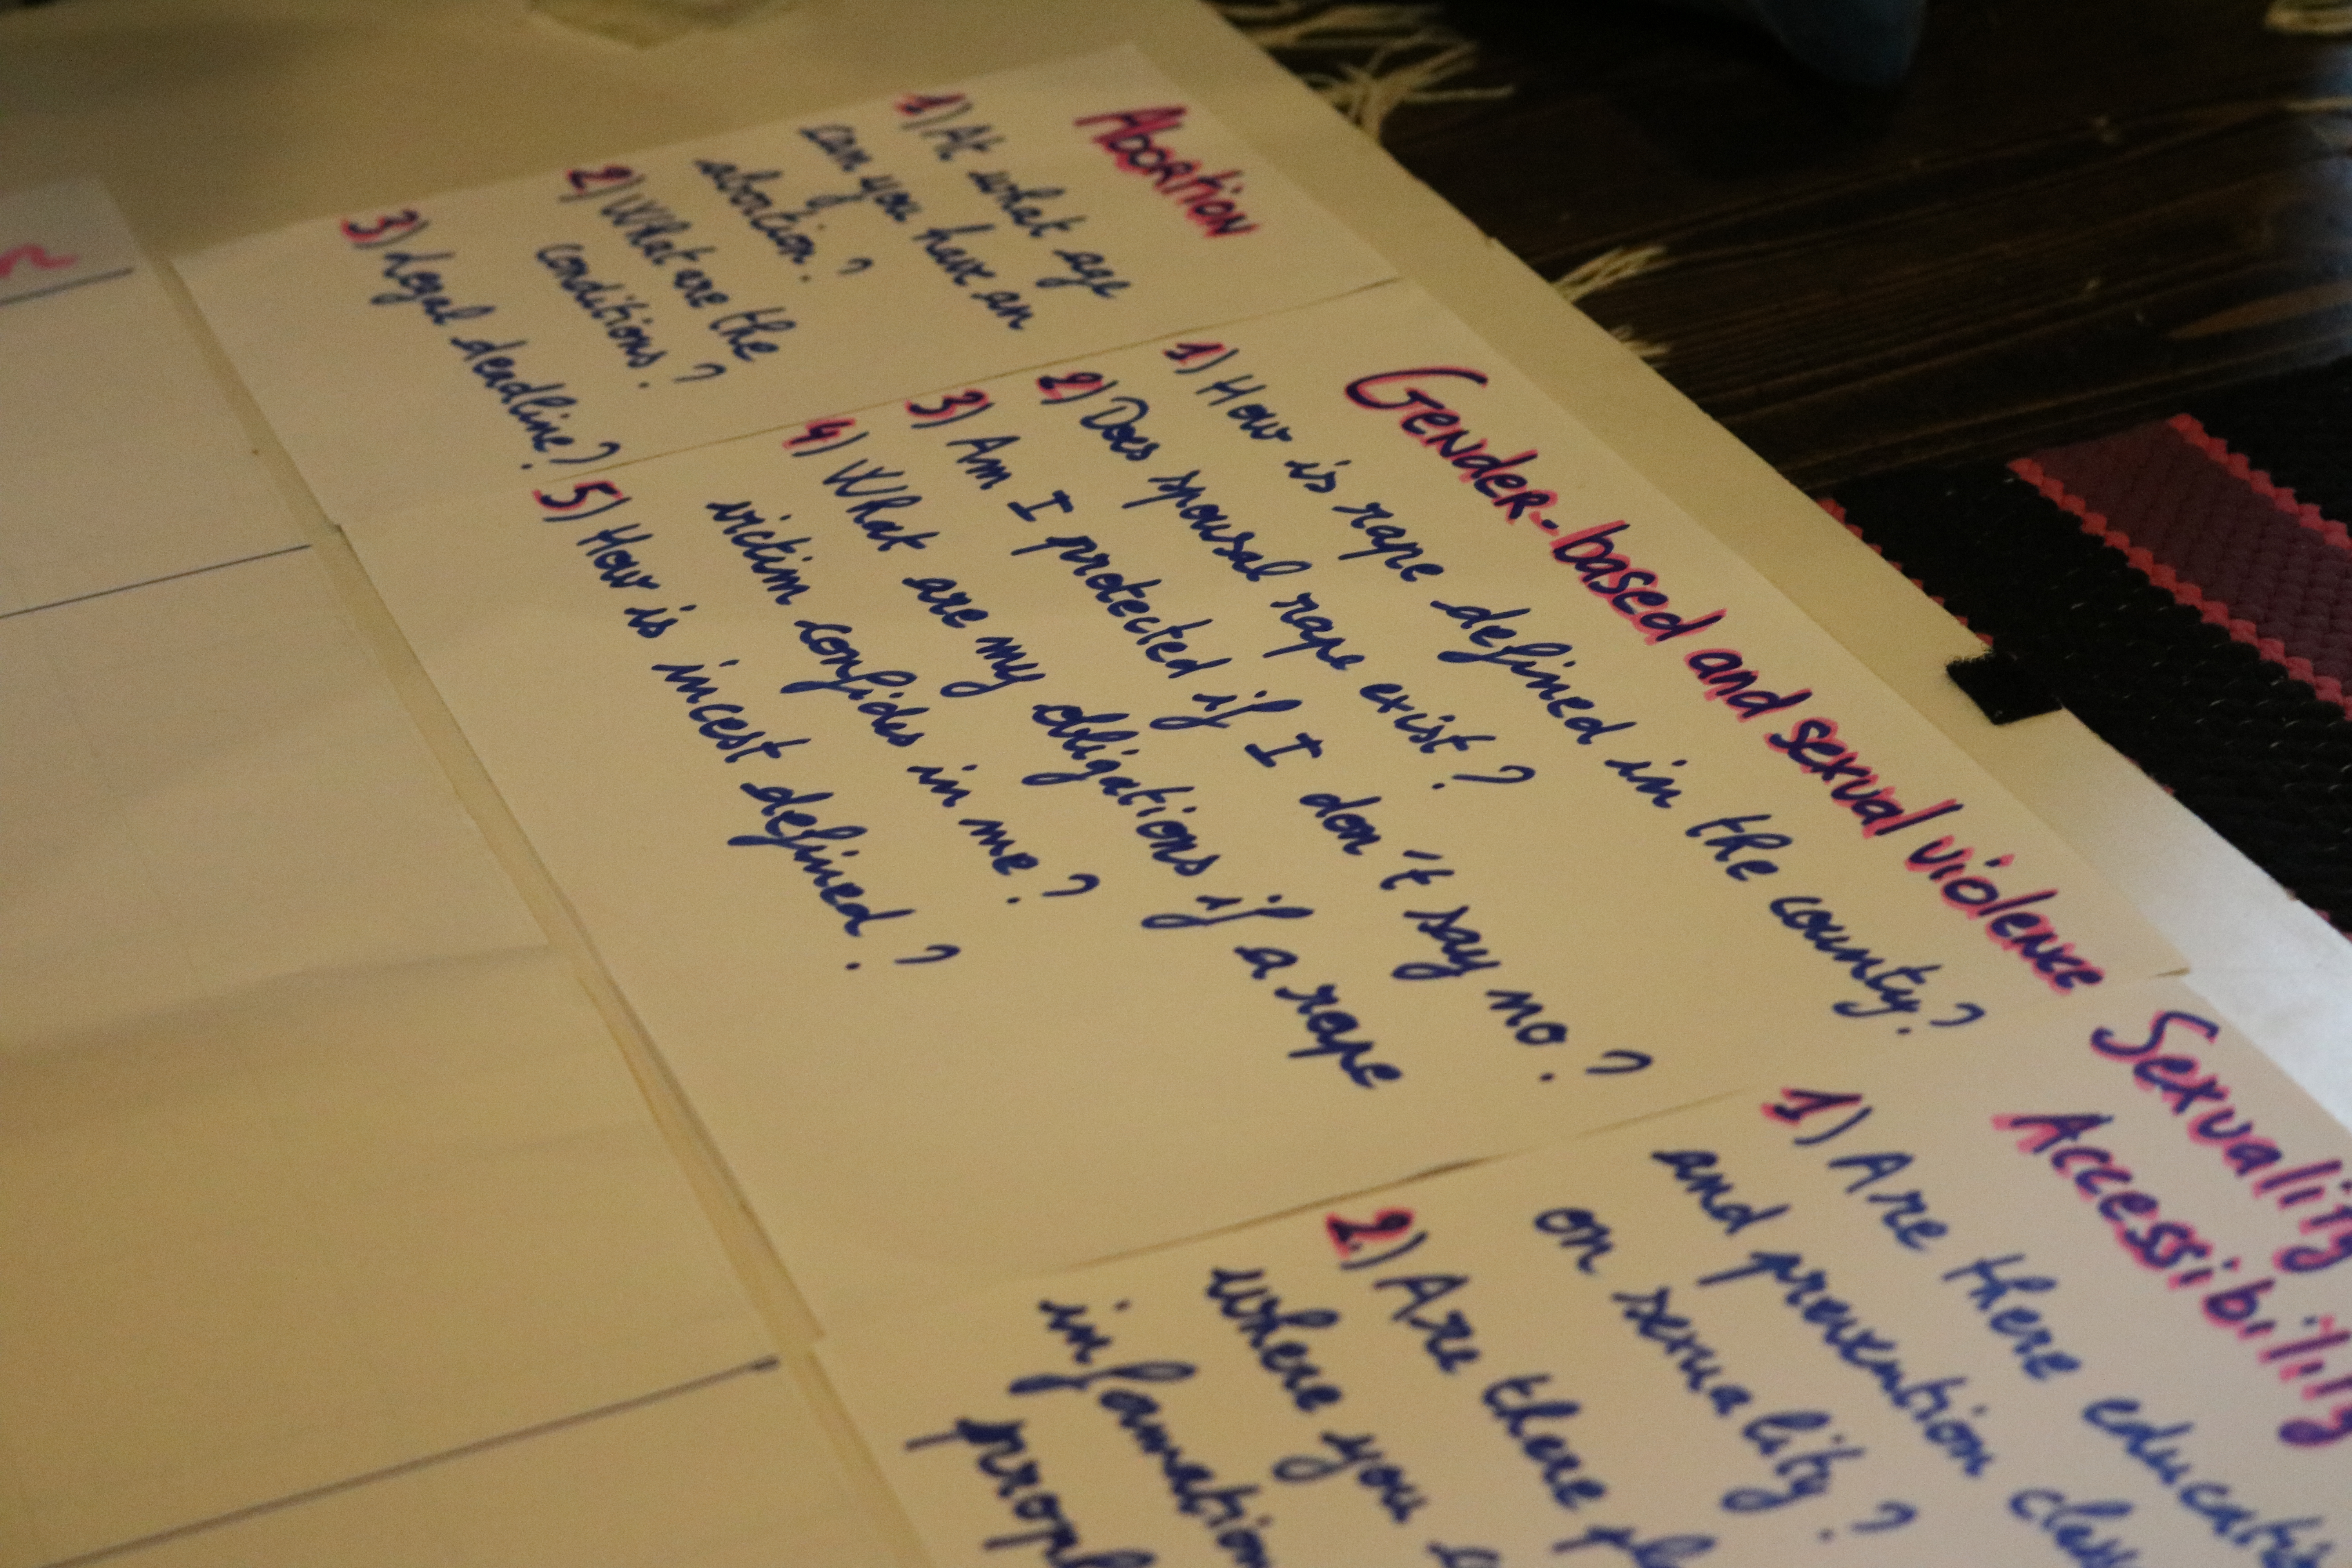 Abortion
1) At what age
can you have an
abortion?
2) What are the
conditions?
3) Legal deadline?
Gender-based and sexual violence
1) How is rape defined in the county?
2) Does spousal rape exist?
3) Am I protected if I don't say no?
4) What are my obligations if a rape
victim confides in me?
5) How is incest defined?
Sexuality
Accessibility
1) Are there
and prevention
on sexuality?
2) Are there
where you